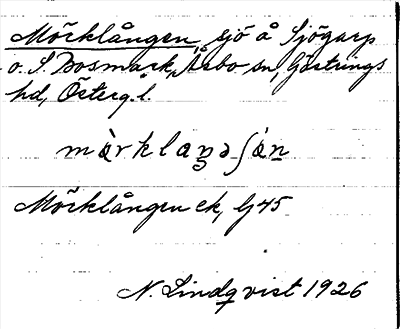 Mörklången, sjö å Sjögarp
o. S. Bosmark, Åsbo sn, Göstrings
hd, Österg. l.
Mörklången ek, G 45
N. Lindqvist 1926